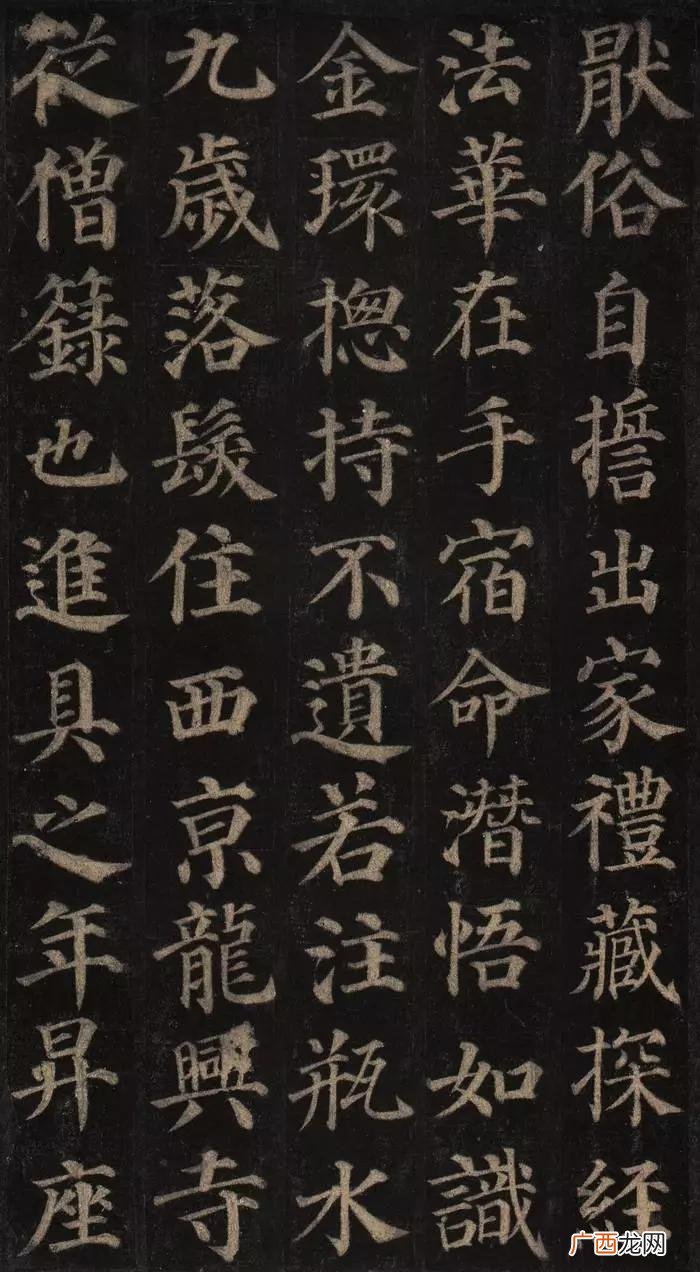 猒俗自誓出家禮藏探經
法華在手宿命潛悟如識
金環揔持不遺若注瓶水
九歲落髮住西京龍興寺
從僧籙也進具之年昇座
广西龙网